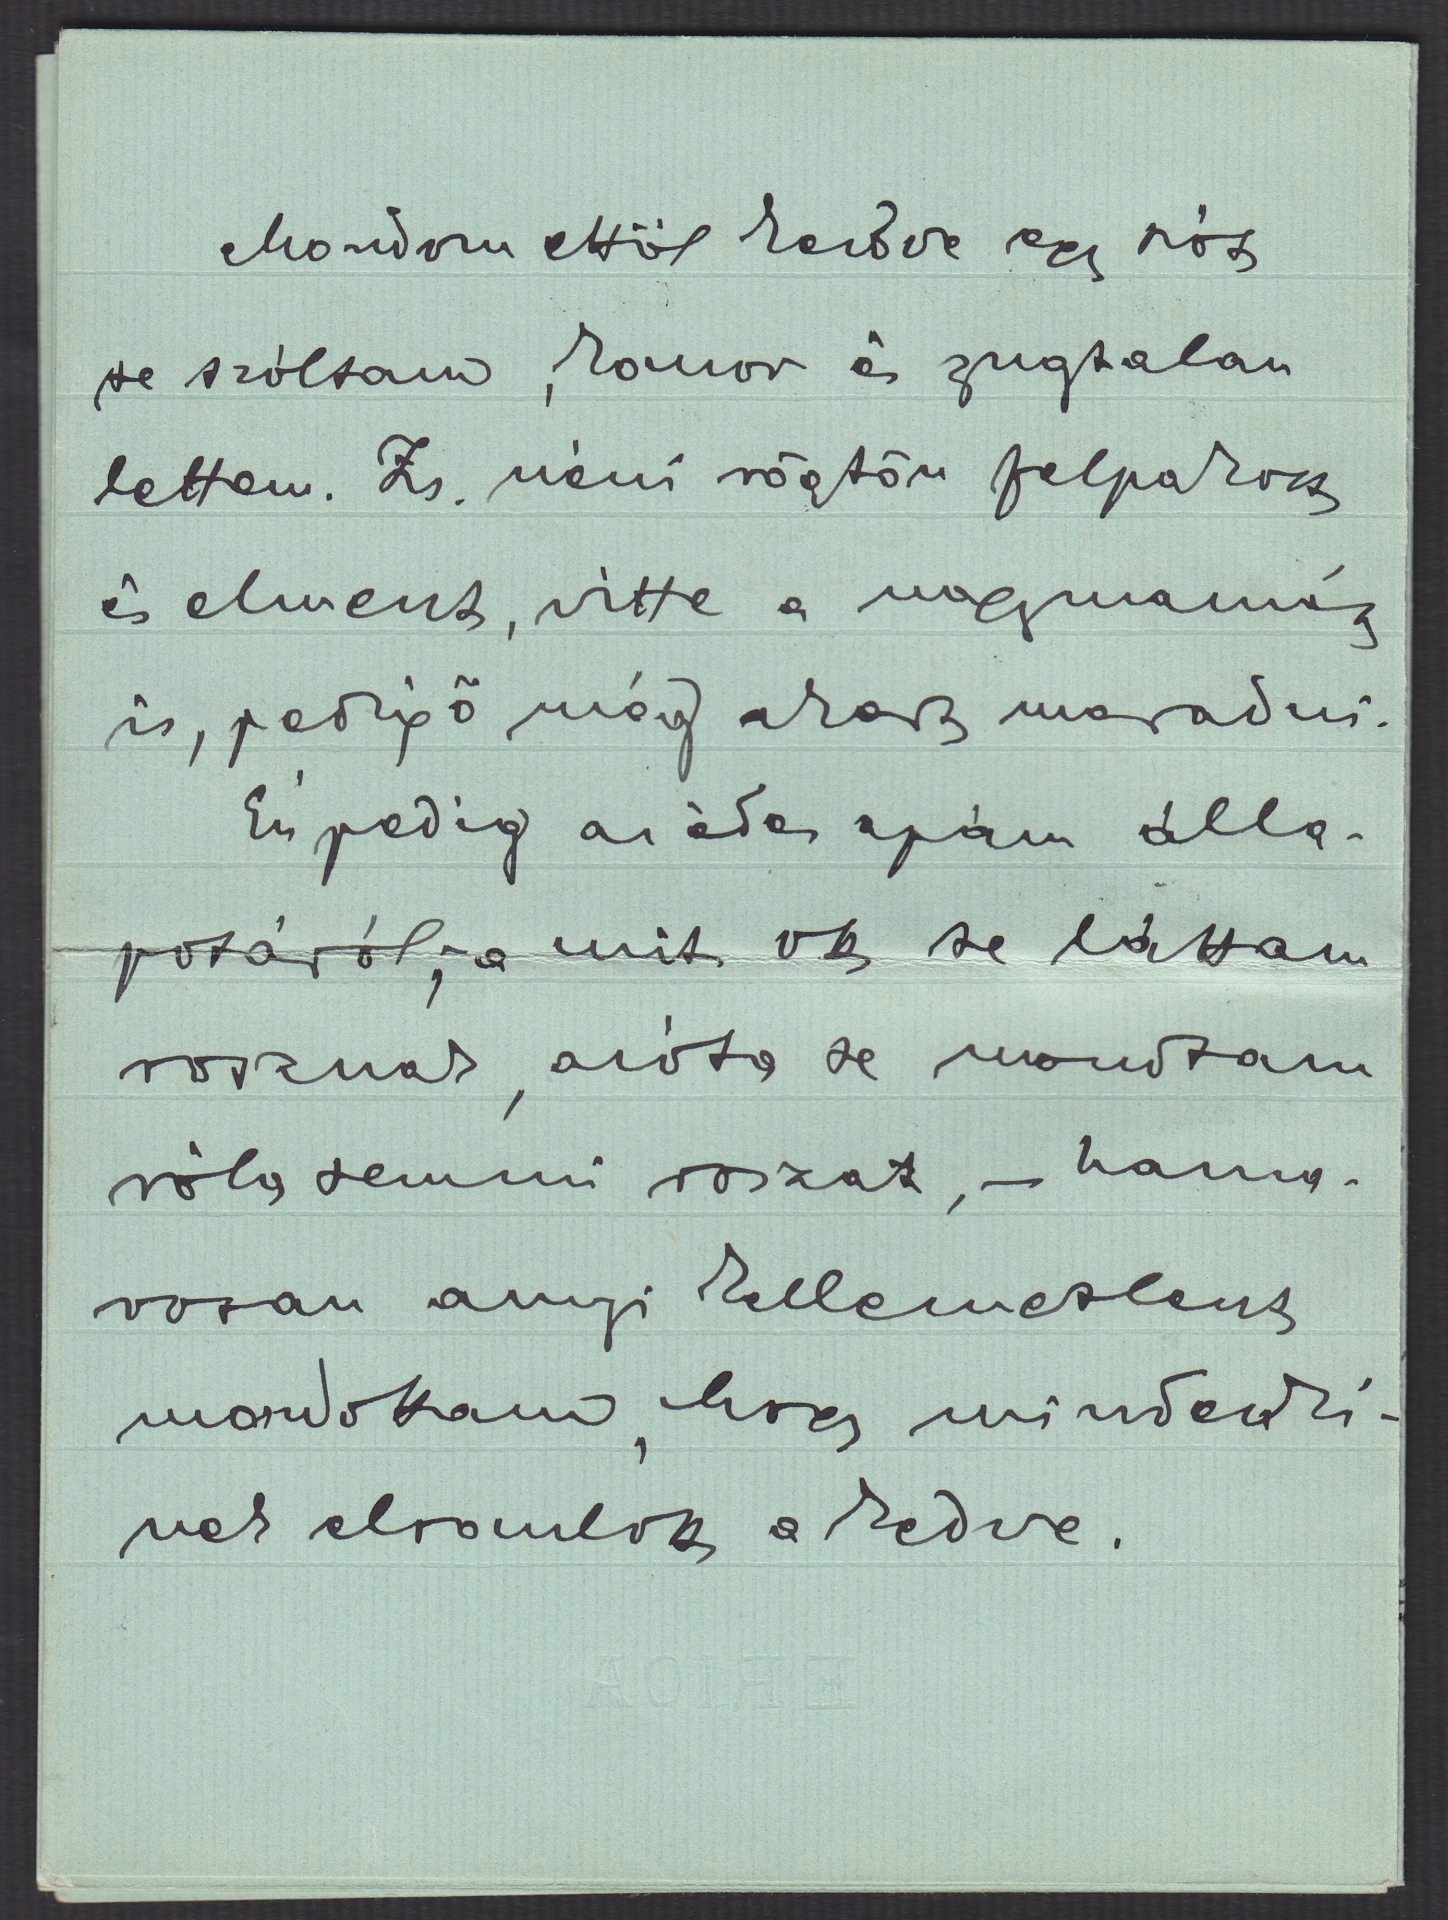 Mondom ettől kezdve egy szót
se szóltam, komor és nyugtalan
lettem. Zs. néni rögtön felpakolt
és elment, vitte a nagymamát
is, pedig ő még akart maradni.
Én pedig az édes apám álla-
potáról, – a mit ott se láttam
rosznak, azóta se mondtam
róla semmi roszat, – hama-
rosan annyi kellemetlent
mondottam, hogy mindenki-
nek elromlott a kedve.
ERICA